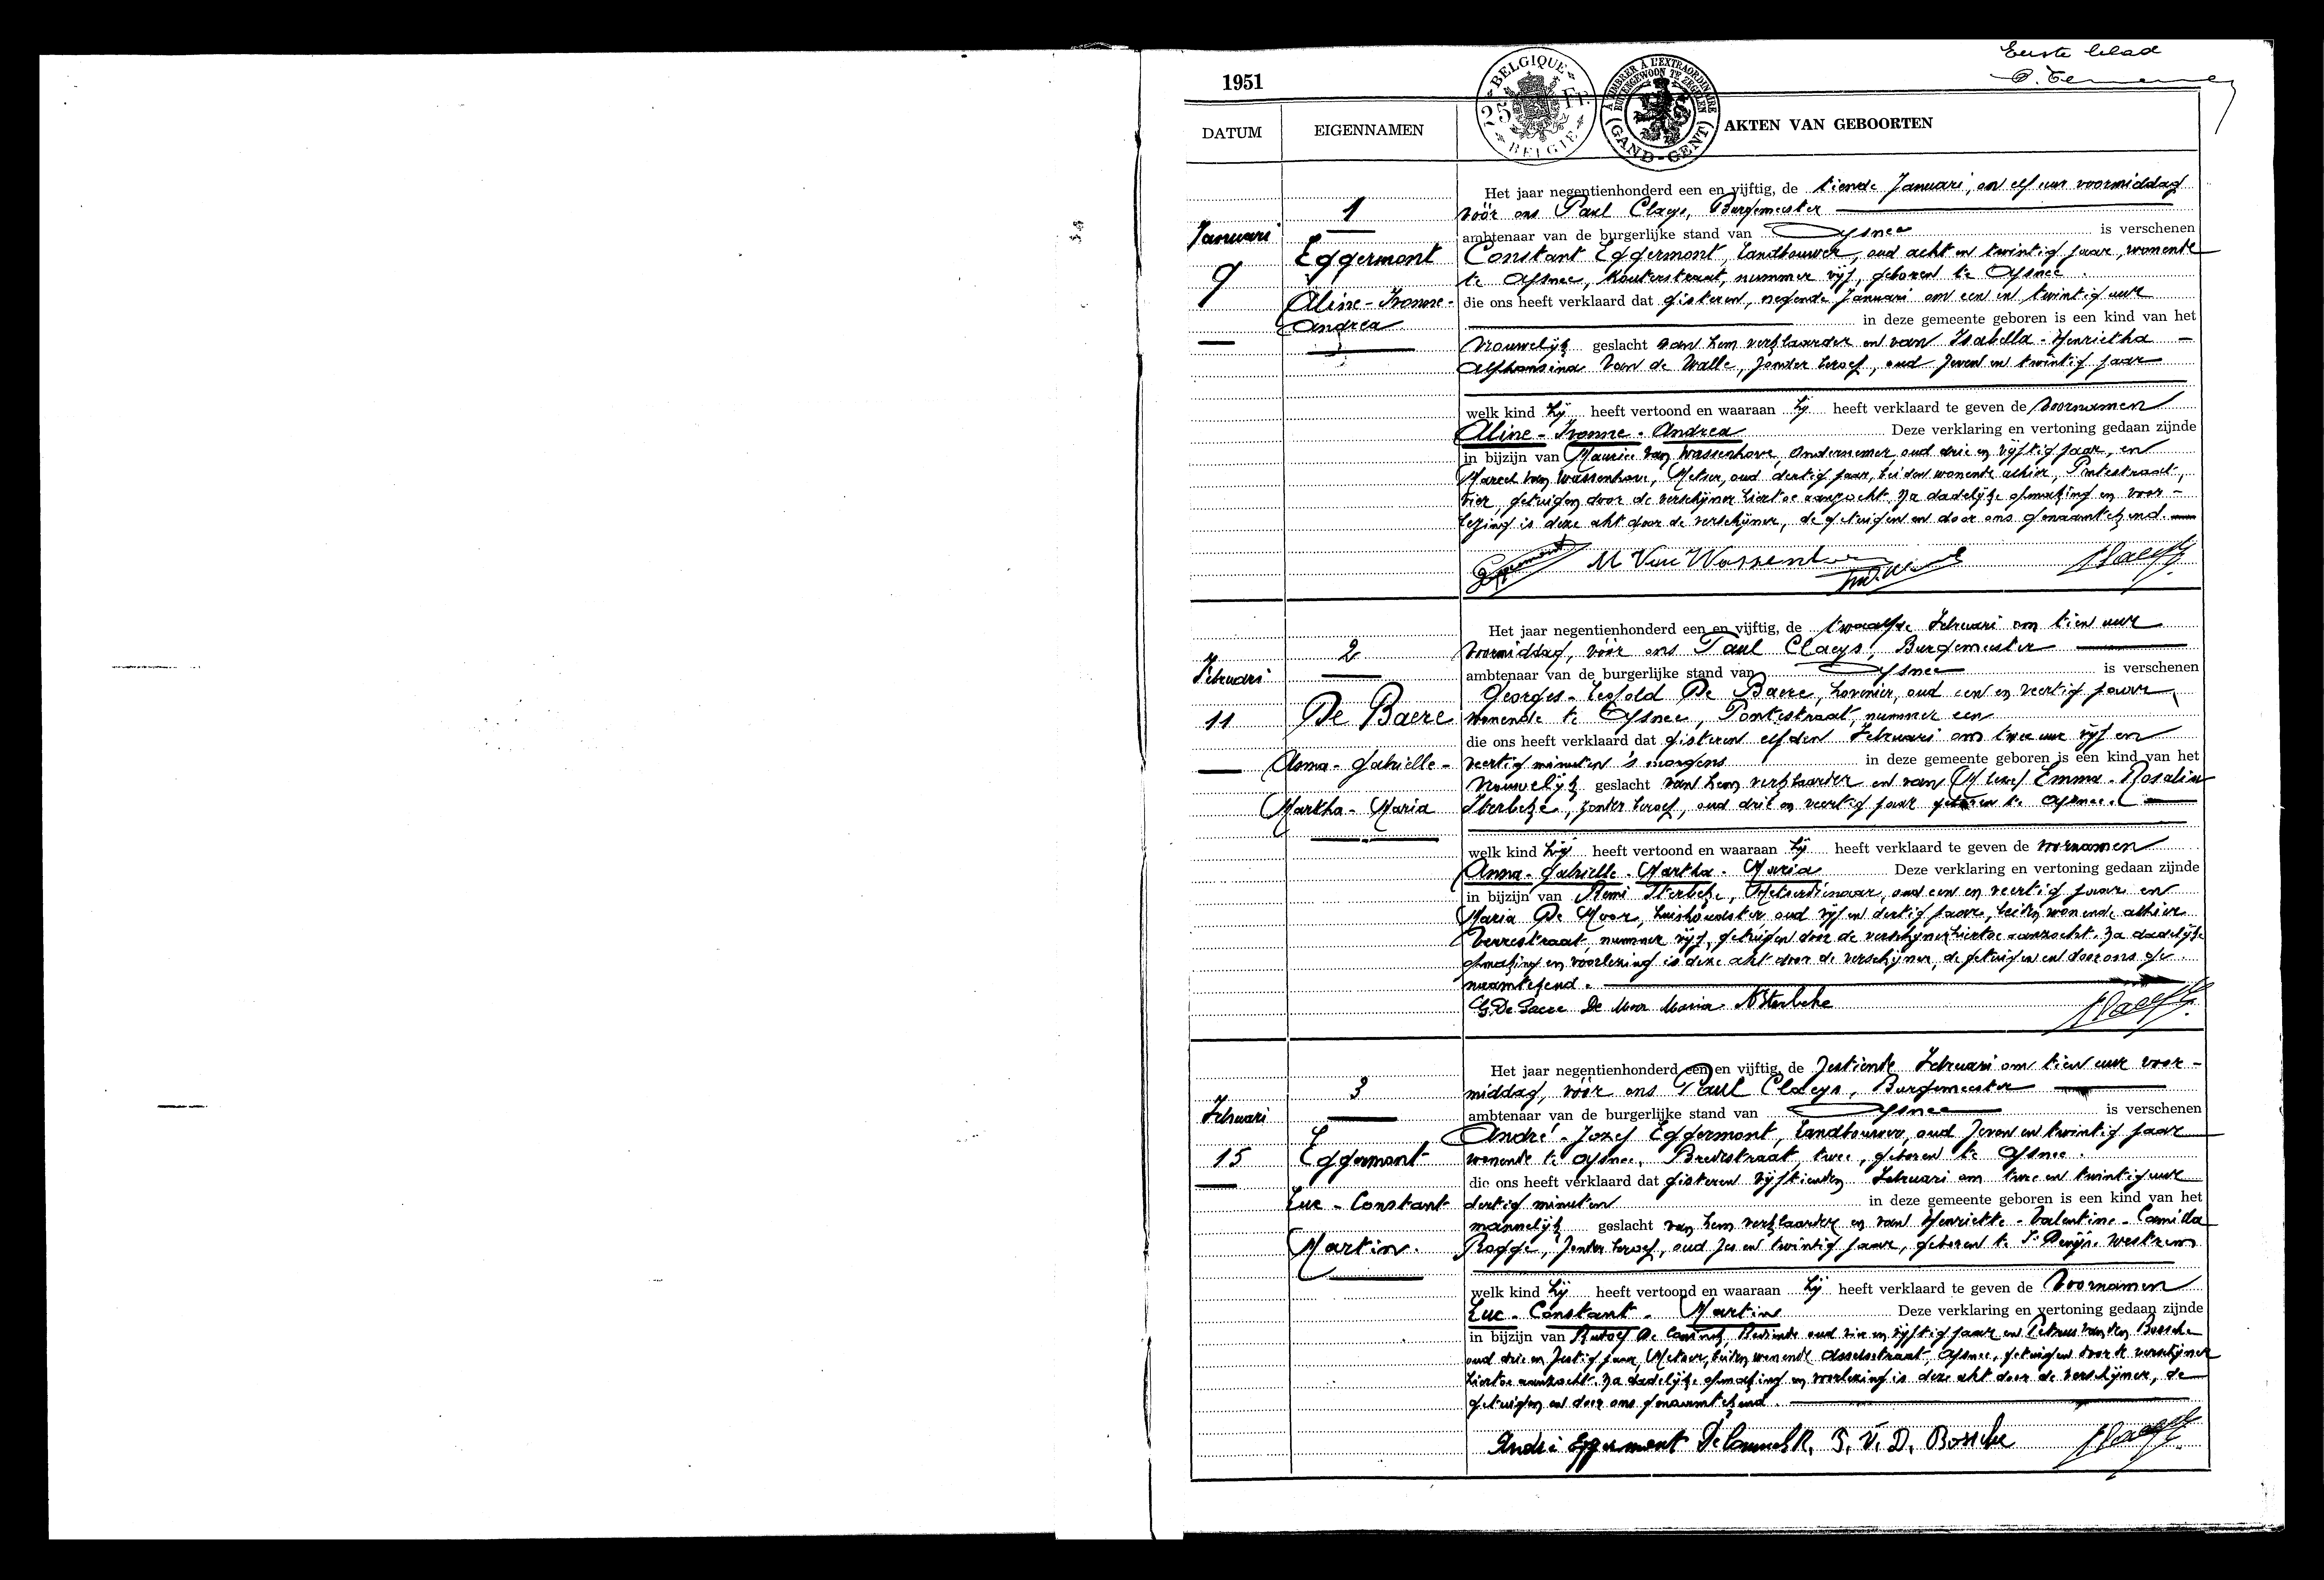 Eerste blad
1951
BELGIQUE
25 Fr.
BELGIE
A TIMBRER A L'EXTRAORDINAIRE
BUITENGEWOON TE ZEGELEN
(GAND-GENT)
DATUM
EIGENNAMEN
AKTEN VAN GEBOORTEN
Januari
9
1
Eggermont
Aline - Ivonne -
Andrea
Het jaar negentienhonderd een en vijftig, de tiende Januari, om elf uur voormiddag
vóór ons Paul Claeys, Burgemeester
ambtenaar van de burgerlijke stand van Afsnee is verschenen
Constant Eggermont, landbouwer, oud acht en twintig jaar, wonende
te Afsnee, Kouterstraat, nummer vijf, geboren te Afsnee.
die ons heeft verklaard dat gisteren, negende Januari om een en twintig uur
in deze gemeente geboren is een kind van het
vrouwelijk geslacht van hem verklaarder en van Isabella - Henrietha -
Alphonsina Van de Walle, zonder beroep, oud zeven en twintig jaar
welk kind hij heeft vertoond en waaraan hij heeft verklaard te geven de voornamen
Aline - Ivonne - Andrea Deze verklaring en vertoning gedaan zijnde
in bijzijn van Maurice Van Wassenhove, Ondernemer, oud drie en vijftig jaar, en
Marcel Van Wassenhove, Metser, oud dertig jaar, beiden wonende alhier, Pontestraat,
vier, getuigen door de verschijner hiertoe aanzocht. Na dadelijke opmaking en voor-
lezing is deze akt door de verschijner, de getuigen en door ons genaamtekend.
Eggermont M Van Wassenhove
Februari
11
2
De Baere
Anna - Gabrielle -
Martha - Maria
Het jaar negentienhonderd een en vijftig, de twaalfde Februari om tien uur
voormiddag, vóór ons Paul Claeys, Burgemeester
ambtenaar van de burgerlijke stand van Afsnee is verschenen
Georges - Leopold De Baere, hovenier, oud een en veertig jaar,
wonende te Afsnee, Pontestraat, nummer een
die ons heeft verklaard dat gisteren elfden Februari om twee uur vijf en
veertig minuten 's morgens in deze gemeente geboren is een kind van het
vrouwelijk geslacht van hem verklaarder en van Emma - Rosalia
Sterbeke, zonder beroep, oud drie en veertig jaar geboren te Afsnee.
welk kind hij heeft vertoond en waaraan hij heeft verklaard te geven de voornamen
Anna - Gabrielle - Martha - Maria Deze verklaring en vertoning gedaan zijnde
in bijzijn van Remi Sterbeke, Metserdienaar, oud een en veertig jaar en
Maria De Moor, huishoudster, oud vijf en dertig jaar, beiden wonende alhier
Veurestraat, nummer vijf, getuigen door de verschijner hiertoe aanzocht. Na dadelijke
opmaking en voorlezing is deze akt door de verschijner, de getuigen en door ons ge-
naamtekend.
G. De Baere De Moor Maria R Sterbeke
Februari
15
3
Eggermont
Luc - Constant
Martin.
Het jaar negentienhonderd een en vijftig, de zestiende Februari om tien uur voor-
middag, vóór ons Paul Claeys, Burgemeester
ambtenaar van de burgerlijke stand van Afsnee is verschenen
André - Jozef Eggermont, landbouwer, oud zeven en twintig jaar
wonende te Afsnee, Breedstraat, twee, geboren te Afsnee.
die ons heeft verklaard dat gisteren vijftienden Februari om twee en twintig uur
dertig minuten in deze gemeente geboren is een kind van het
mannelijk geslacht van hem verklaarder en van Henriette - Valentine - Camilla
Rogge, zonder beroep, oud zes en twintig jaar, geboren te St Denijs-Westrem
welk kind hij heeft vertoond en waaraan hij heeft verklaard te geven de voornamen
Luc - Constant - Martin Deze verklaring en vertoning gedaan zijnde
in bijzijn van De Coninck, Bediende oud en vijftig jaar en Petrus Van den Bossche
oud drie en zestig jaar, Metser, beiden wonende Asselsstraat, Afsnee, getuigen door de verschijner
hiertoe aanzocht. Na dadelijke opmaking en voorlezing is deze akt door de verschijner, de
getuigen en door ons genaamtekend.
André Eggermont De Coninck R. P. V. D. Bossche